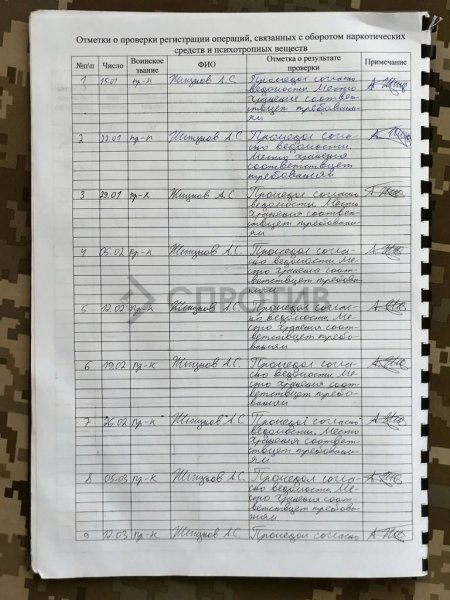 Отметки о проверки регистрации операций, связанных с оборотом наркотических
средств и психотропных веществ
№п\п Число Воинское звание ФИО Отметка о результате проверки Примечание
1 15.01 пр-к А.С.
согласно
ведомости. Место
хранения соответ-
ствует требовани-
ям
2 22.01 пр-к А.С.
согла-
сно ведомости.
Место хранения
соответствует
требованиям
3 29.01 пр-к А.С.
согласно
ведомости. Место
хранения соответ-
ствует требовани-
ям
4 05.02 пр-к А.С.
согла-
сно ведомости. Ме-
сто хранения соот-
ветствует требова-
ниям
СПРОТИВ
5 12.02 пр-к А.С.
соглас-
но ведомости. Ме-
сто хранения соот-
ветствует требо-
ваниям
6 19.02 пр-к А.С.
согла-
сно ведомости. Ме-
сто хранения соот-
ветствует требо-
ваниям
7 26.02 пр-к А.С.
согласно
ведомости. Место
хранения соответ-
ствует требовани-
ям
8 05.03 пр-к А.С.
согла-
сно ведомости. Ме-
сто хранения соот-
ветствует требова-
ниям
9 12.03 пр-к А.С.
согласно